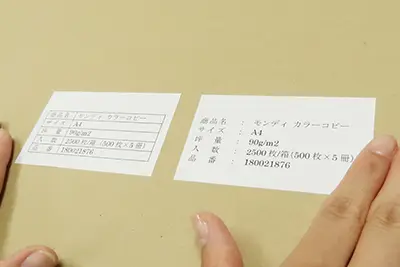 商品名 モンディ カラーコピー
サイズ A4
坪量 90g/m2
入数 2500枚/箱(500枚×5冊)
品番 180021876
商品名 : モンディ カラーコピー
サイズ : A4
坪量 : 90g/m2
入数 : 2500枚/箱(500枚×5冊)
品番 : 180021876